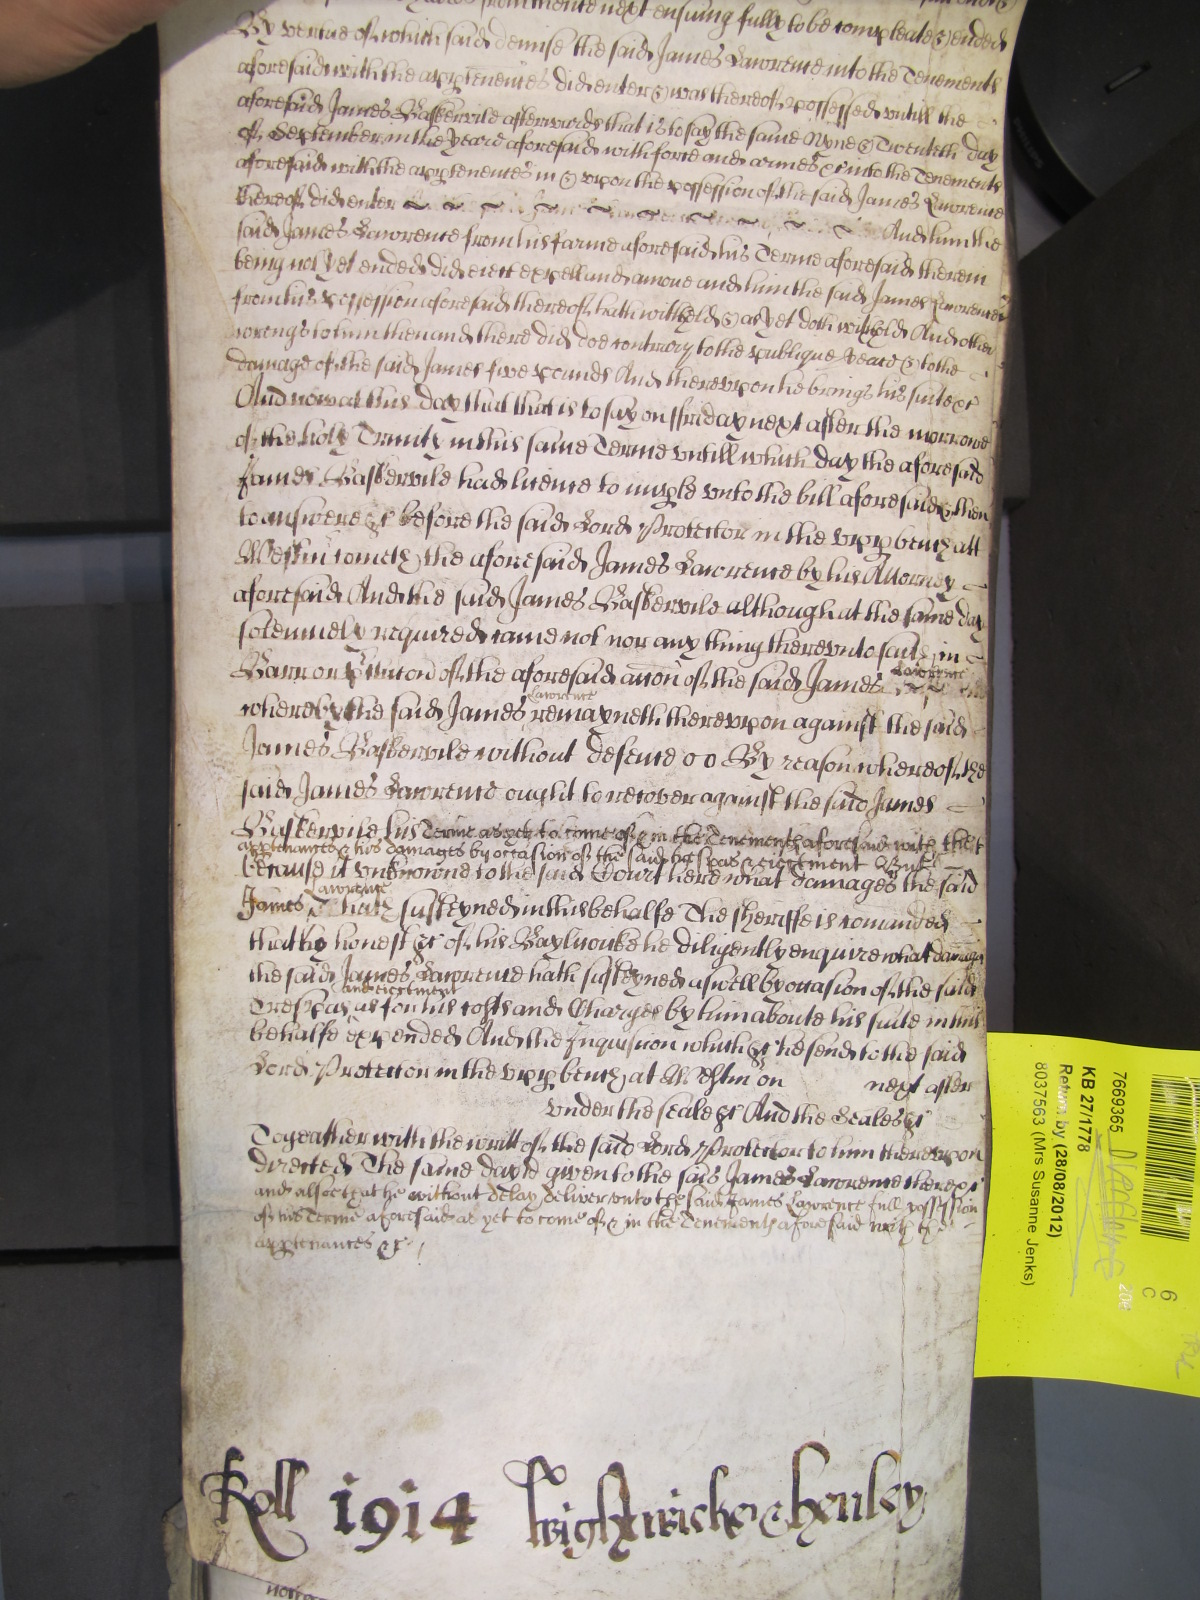 from thence next ensuing fully to be compleate & ended
By vertue of which said demise the said James Lawrence into the Tenements
aforesaid with the apptenences did enter & was thereof possessed untill the
aforesaid James Baskervile afterwards that is to say the same Nyne & Twentieth day
of September in the yeare aforesaid with force and armes &c into the Tenements
aforesaid with the apptenences in & upon the possession of the said James Lawrence
thereof did enter And him the
said James Lawrence from his farme aforesaid his Terme aforesaid therein
being not yet ended did eiect expell and amove and him the said James Lawrence
from his possession aforesaid thereof hath withheld & as yet doth withold And other
wrongs to him then and there did doe contrary to the publique Peace & to the
damage of the said James five pounds And thereupon he brings his suite &c
And now at this day that that is to say on ffriday next after the morrowe
of the holy Trinity in this same Terme untill which day the aforesaid
James Baskervile had licence to imple unto the bill aforesaid & then
to answere &c before the said Lord Protector in the upp bench att
Westm cometh the aforesaid James Lawrence by his Attorney
aforesaid And the said James Baskervile although at the same day
solemnely required came not nor any thing thereunto saith in
Barr or of the aforesaid accon of the said James Lawrence
whereby the said James Lawrence remayneth thereupon against the said
James Baskervile without defence oo By reason whereof the
said James Lawrence ought to recover against the said James
Baskervile his Terme as yet to come of & in the Tenements aforesaid with the
apptenances & his damages by occasion of the said trespas & eiectment But
because it unknowne to the said Court here what damages the said
James Lawrence hath susteyned in this behalfe The sheriffe is comanded
that by honest &c of his Baylwicke he diligently enquire what damage
the said James Lawrence hath susteyned aswell by occasion of the said
Trespas and eiectment as for his costs and Charges by him aboute his suite in this
behalfe expended And the Inquisicion which &c he send to the said
Lord Protector in the upp bench at Westm on next after
under the seale &c And the Seales &c
Togeather with the writt of the said Lord Protector to him thereupon
directed The same day is given to the said James Lawrence there &c
and alsoe that he without delay deliver unto the said James Lawrence full possession
of his Terme aforesaid as yet to come of & in the Tenements aforesaid with the
apptenances &c
Roll 1914 Wightwicke & henley
7669365
KB 27/1778
Return by (28/08/2012)
8037563 (Mrs Susanne Jenks)
6
C